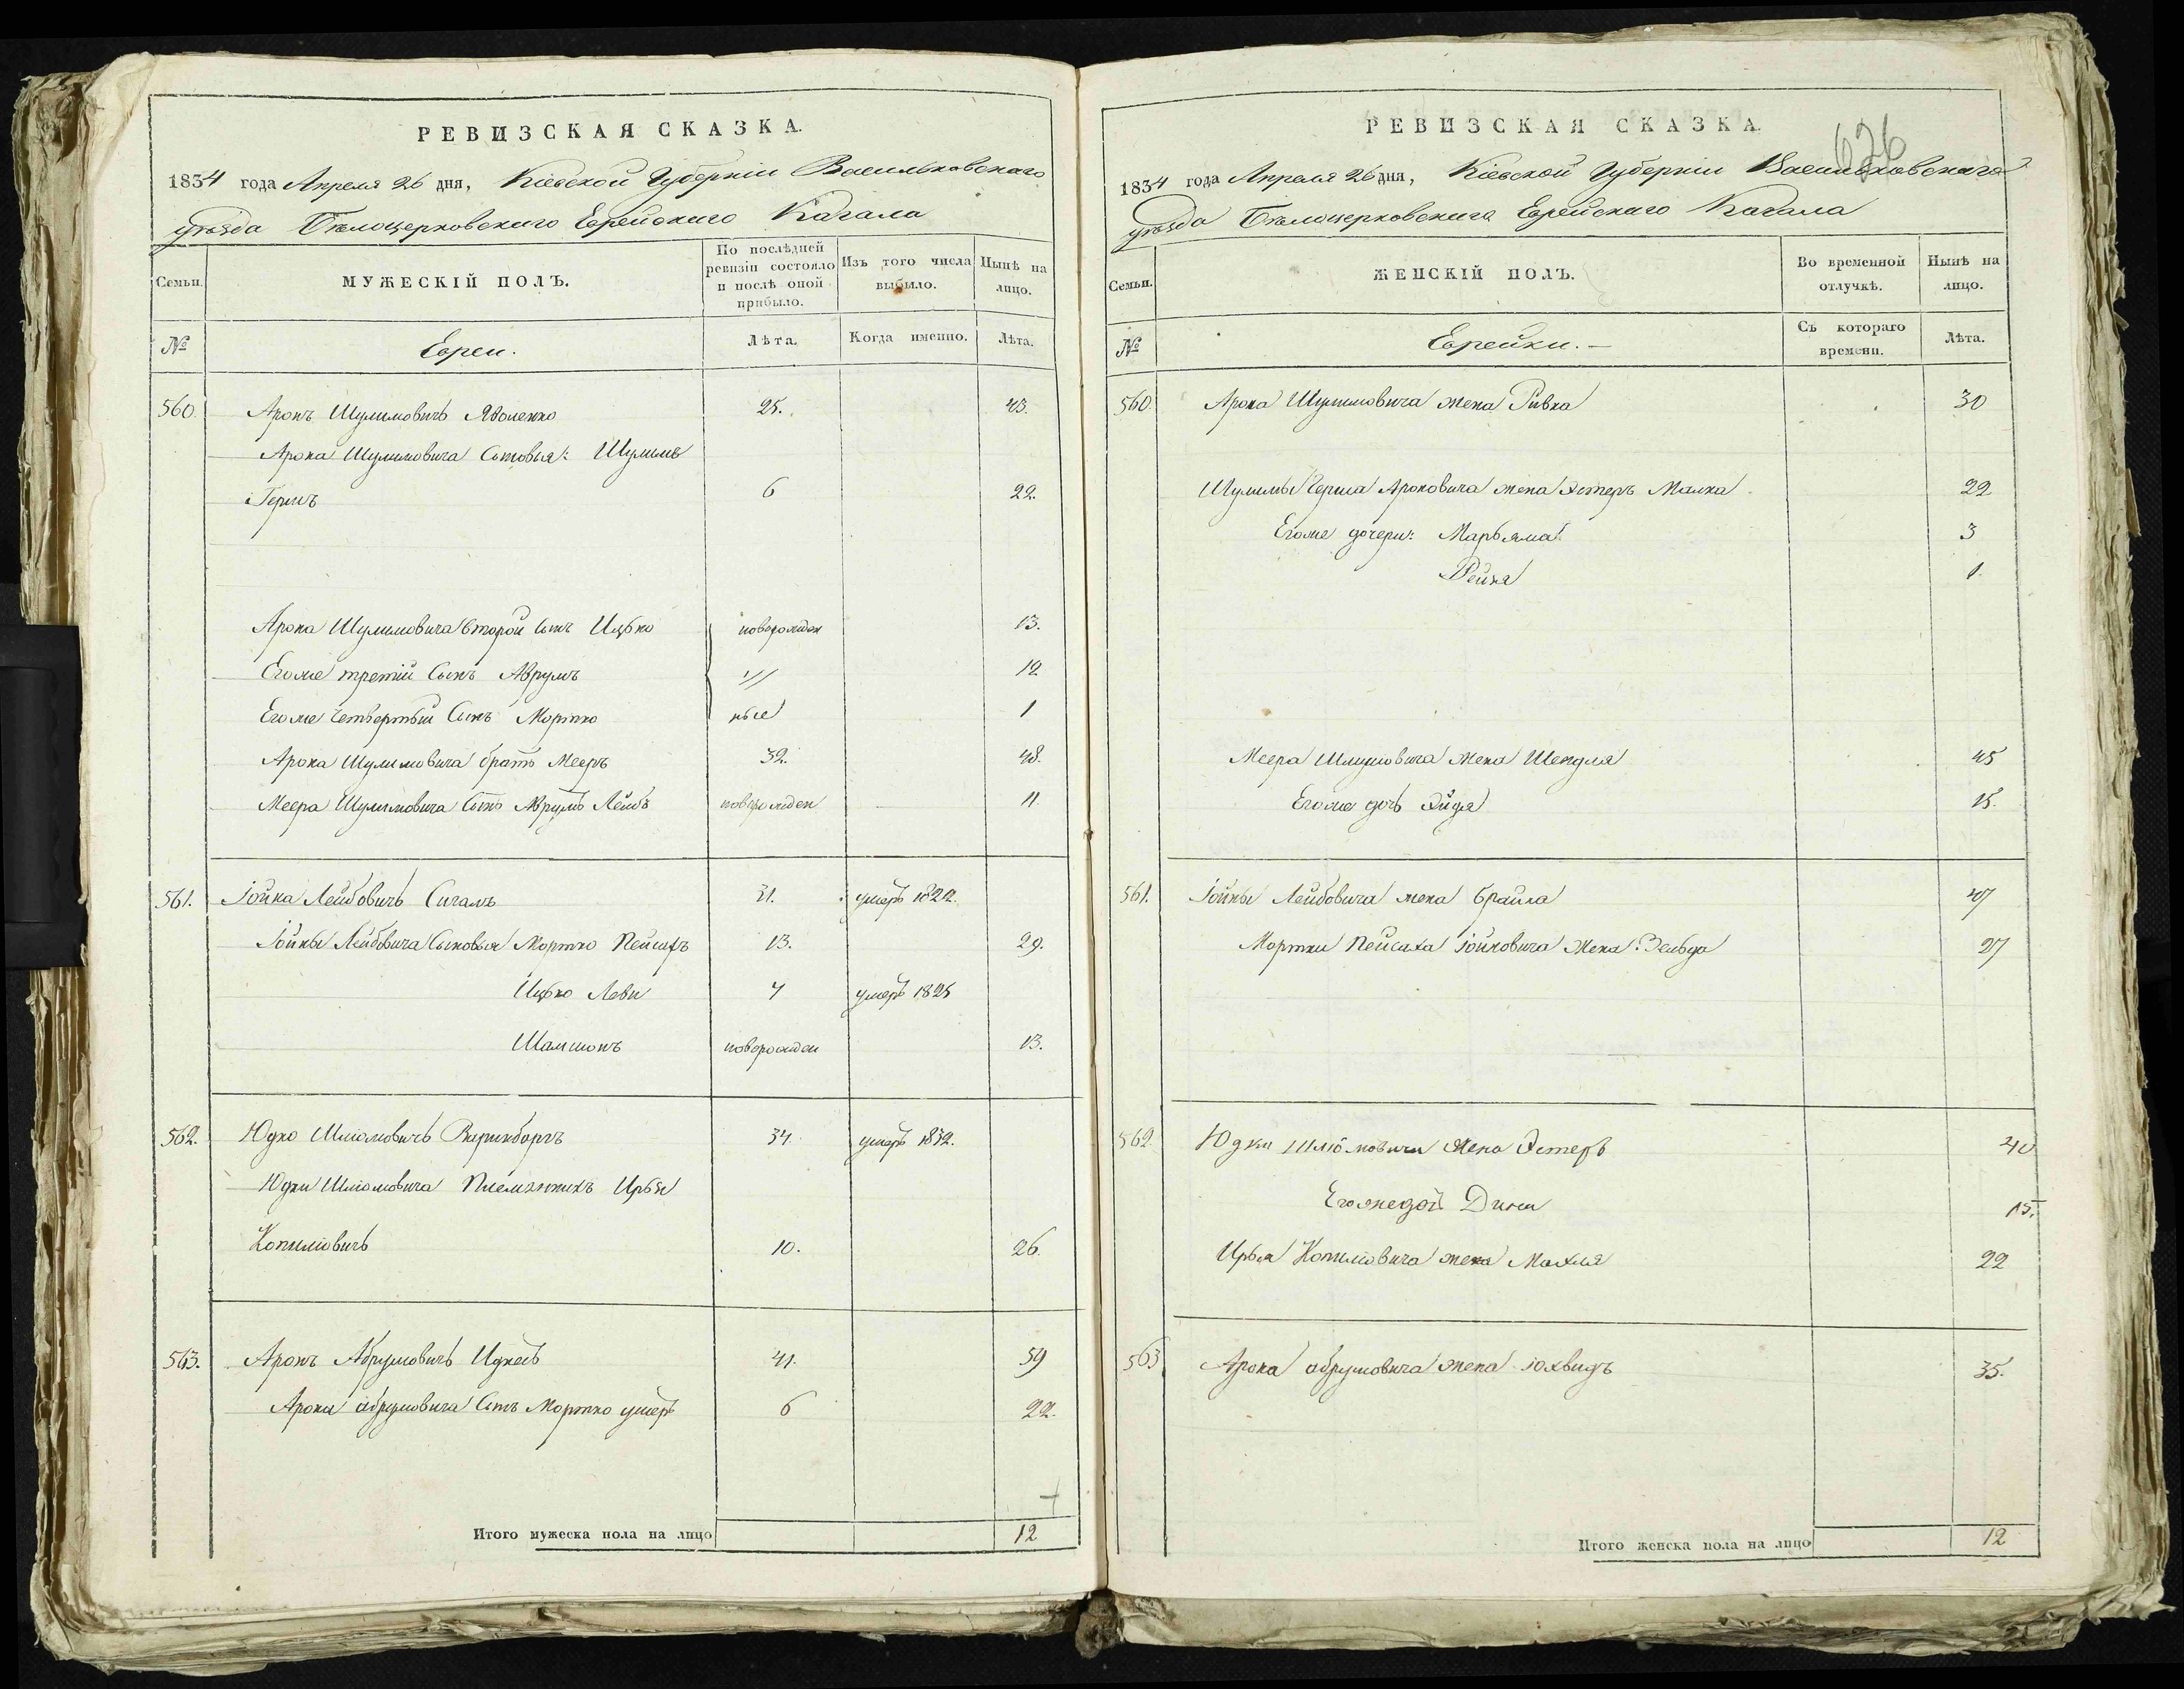 РЕВИЗСКАЯ СКАЗКА.
1834 года Апреля 26 дня, Кіевской Губерніи Васильковскаго
уѣзда Бѣлоцерковскаго Еврейскаго Кагала
Семьи.
МУЖЕСКІЙ ПОЛЪ.
По послѣдней ревизіи состояло и послѣ оной прибыло.
Изъ того числа выбыло.
Нынѣ на лицо.
№
Евреи.
Лѣта.
Когда именно.
Лѣта.
560. Аронъ Шулимовичъ 25. 43.
Арона Шулимовича Сыновья: Шулимъ
Гершъ 6 22.
Арона Шулимовича второй Сынъ Ицько новорожден 13.
Егоже третій Сынъ Аврумъ " 12
Егоже Четвертый Сынъ Мортко ные 1
Арона Шулимовича братъ Мееръ 32. 48.
Меера Шулимовича Сынъ Аврумъ Лейбъ новорожден 11.
561. Іойна Лейбовичъ Сигалъ 31. умеръ 1822.
Іойны Лейбовича Сыновья Мортко Пейсахъ 13. 29.
Ицько Леви 4 умеръ 1825
Шамшонъ новорожден 13.
562. Юдко Шліомовичъ 34 умеръ 1832.
Юдки Шліомовича Племянникъ Ирья
Копиліовичъ 10. 26.
563. Аронъ Абрумовичъ 41. 59
Арона абрумовича Сынъ Мортко умеръ 6 22.
Итого мужеска пола на лицо 12
РЕВИЗСКАЯ СКАЗКА.
626
1834 года Апреля 26 дня, Кіевской Губерніи Васильковскаго
уѣзда Бѣлоцерковскаго Еврейскаго Кагала
Семьи.
ЖЕНСКІЙ ПОЛЪ.
Во временной отлучкѣ.
Нынѣ на лицо.
№
Еврейки.
Съ котораго времени.
Лѣта.
560. Арона Шулимовича жена Ривка 30
Шулимы Герша Ароновича жена Эстеръ Малка 22
Егоже дочери: Марьяма 3
Рейзя 1.
Меера Шлиумовича жена Шендля 45
Егоже дочь Эйдя 15.
561. Іойны Лейбовича жена Брайна 47
Мортки Пейсаха Іойновича жена Зельда 27
562. Юдки Шліомовича жена Эстеръ 40
Егоже дочь Дина 15.
Ирья Копиліовича жена Махля 22
563 Арона абрумовича жена Юхвидъ 35.
Итого женска пола на лицо 12